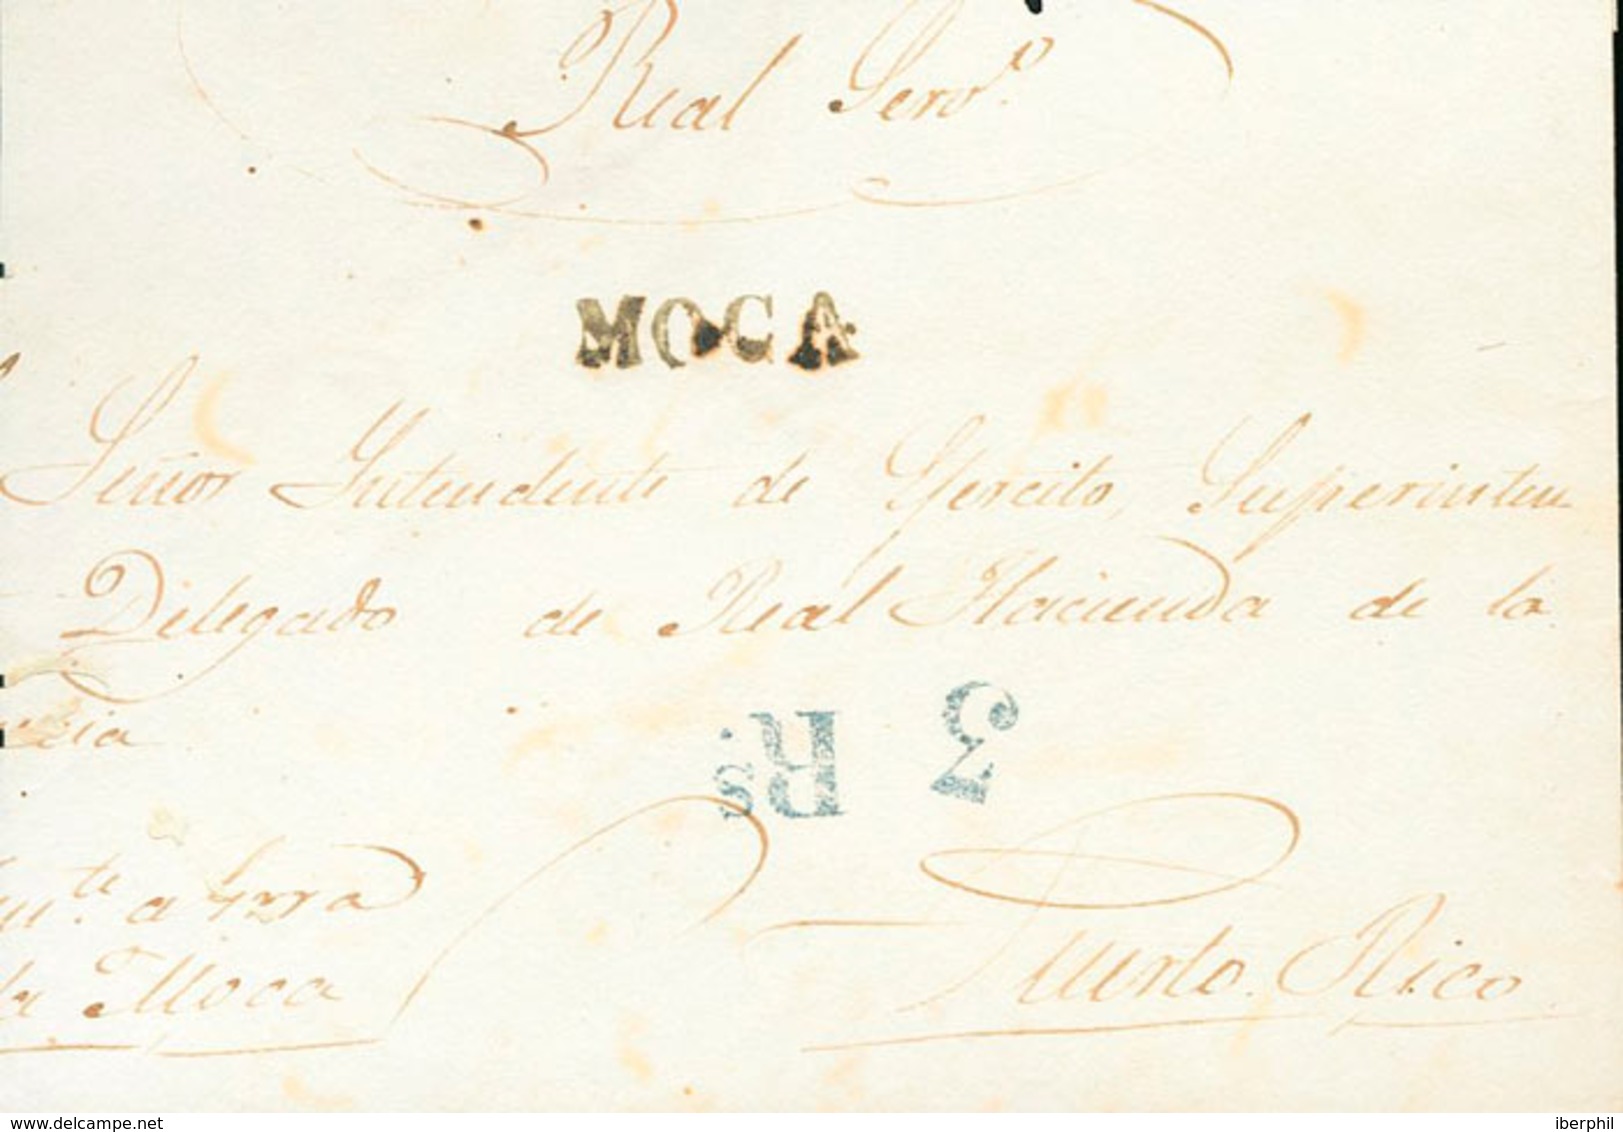 Real Serv.o
MOCA
Señor Intendente de Ejercito, Superinten
Delegado de Real Hacienda de la
3 Rs.
a Yrra
la Moca
Puerto Rico
www.delcampe.net
iberphil